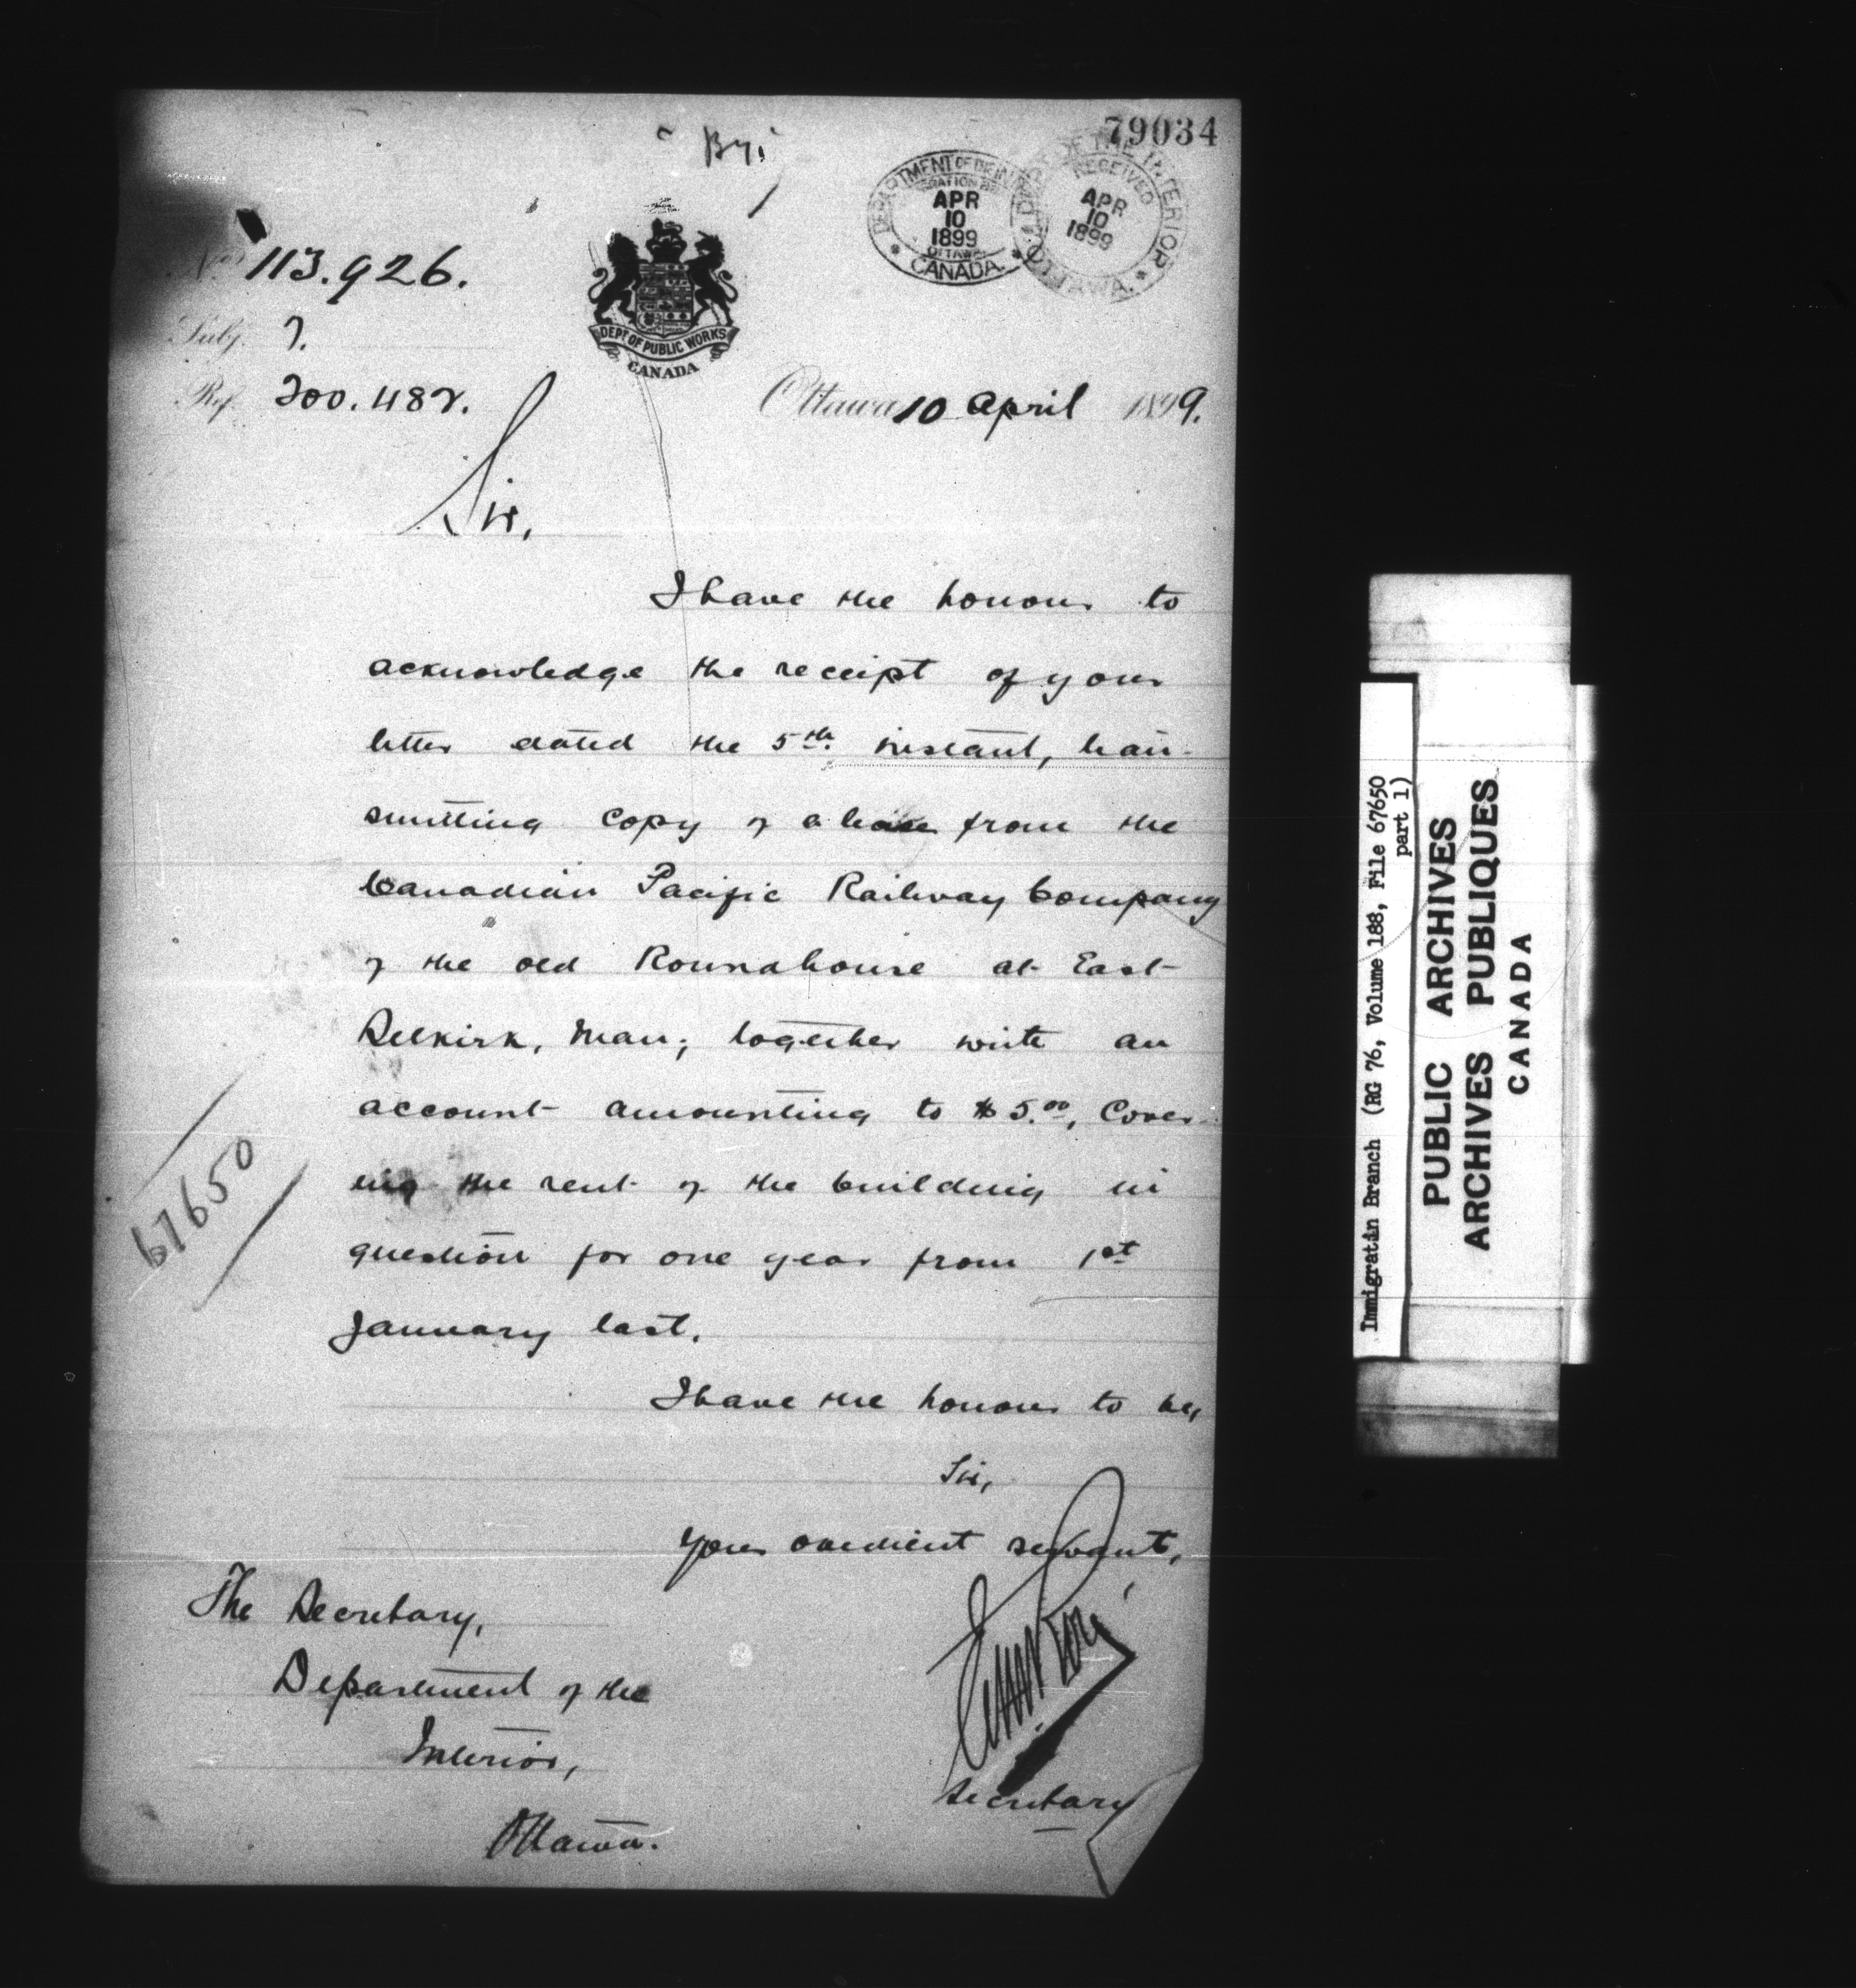 79034
DEPARTMENT OF THE IN
APR
10
1899
OTTAWA
CANADA
DEPT OF THE INTERIOR
RECEIVED
APR
10
1899
OTTAWA
No 113.926.
Subj. 7.
Ref. 200.482.
DEPT OF PUBLIC WORKS
CANADA
Ottawa 10 April 1899.
Sir,
I have the honour to
acknowledge the receipt of your
letter dated the 5th instant, tran-
smitting copy of a lease from the
Canadian Pacific Railway Company
of the old Roundhouse at East
Selkirk, Man; together with an
account amounting to $5.00, cover-
ing the rent of the building in
question for one year from 1st
January last.
I have the honour to be,
Sir,
Your obedient servant,
Secretary
The Secretary,
Department of the
Interior,
Ottawa.
67650
Immigratin Branch (RG 76, Volume 188, File 67650
part 1)
PUBLIC ARCHIVES
ARCHIVES PUBLIQUES
CANADA